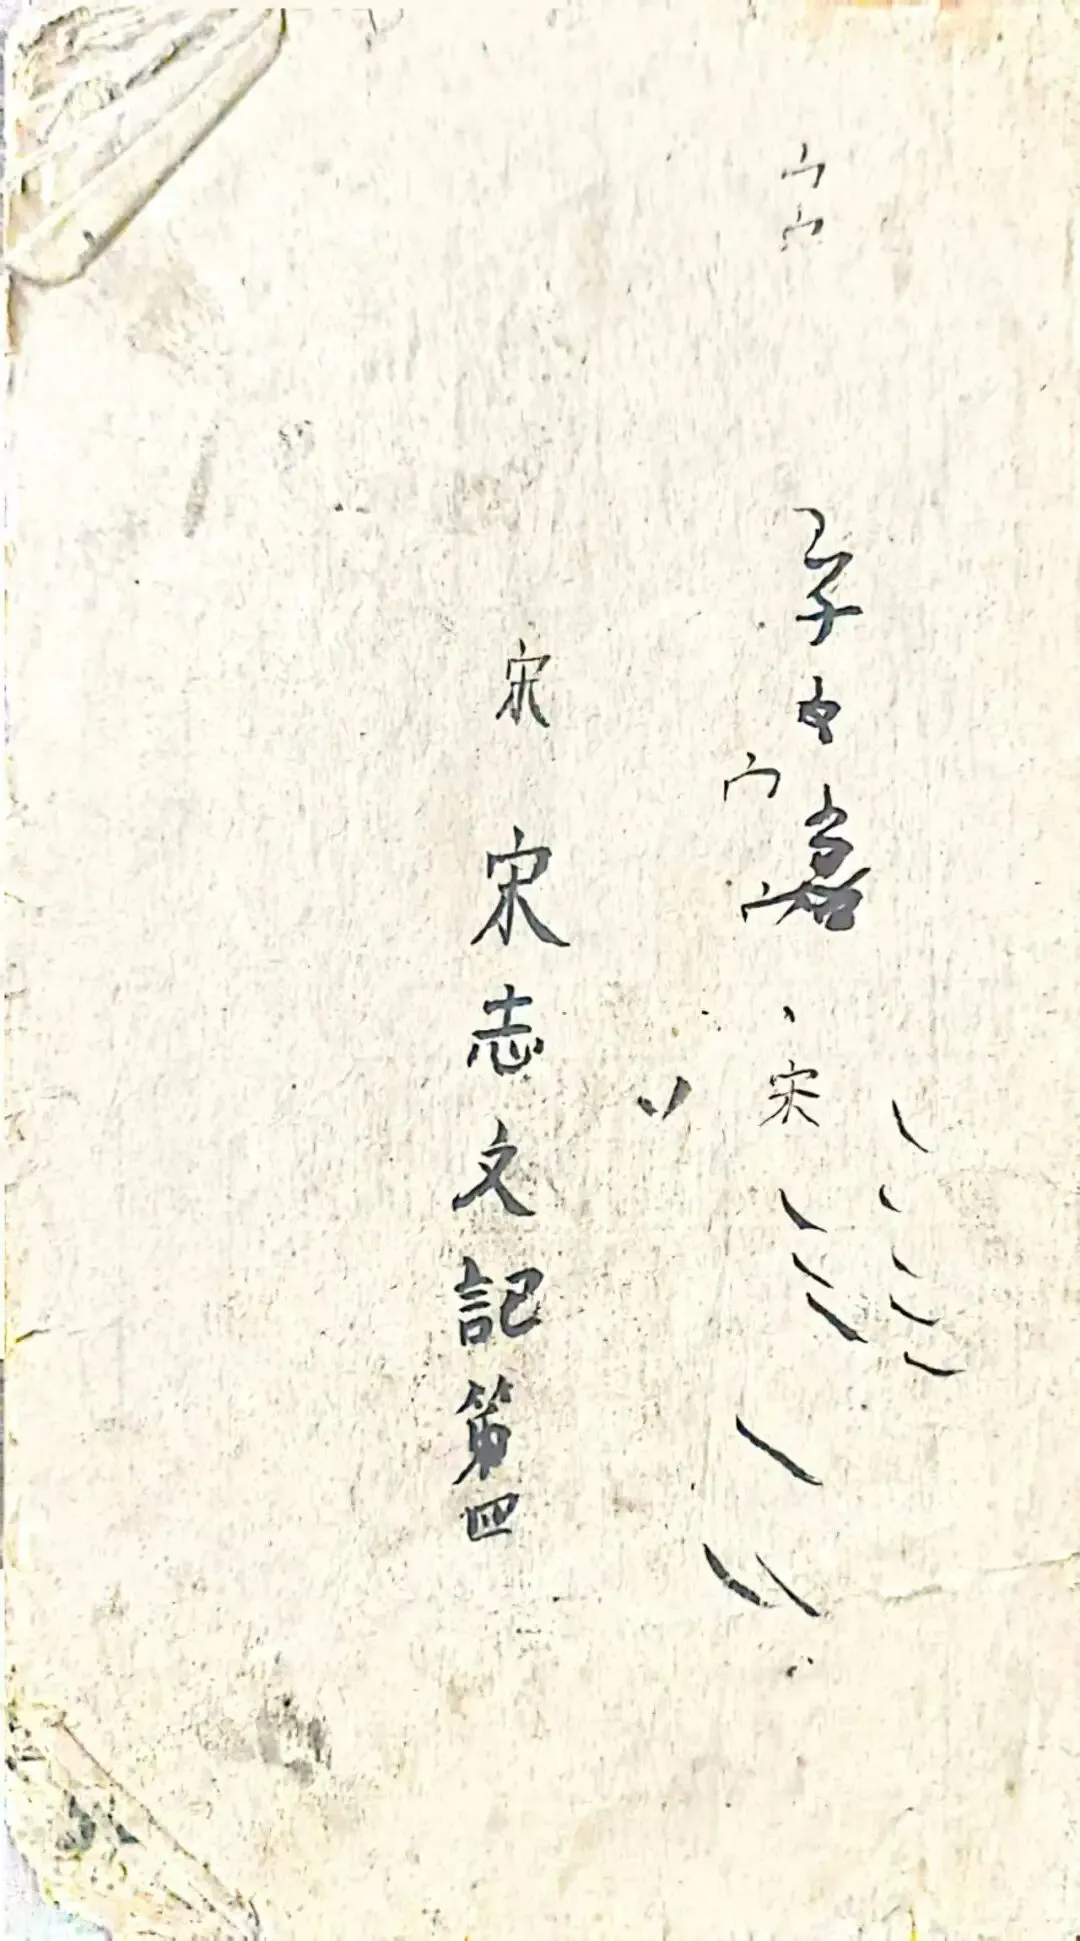 宀
宀
子
宀
宀
宋
宋
宋志文記第四